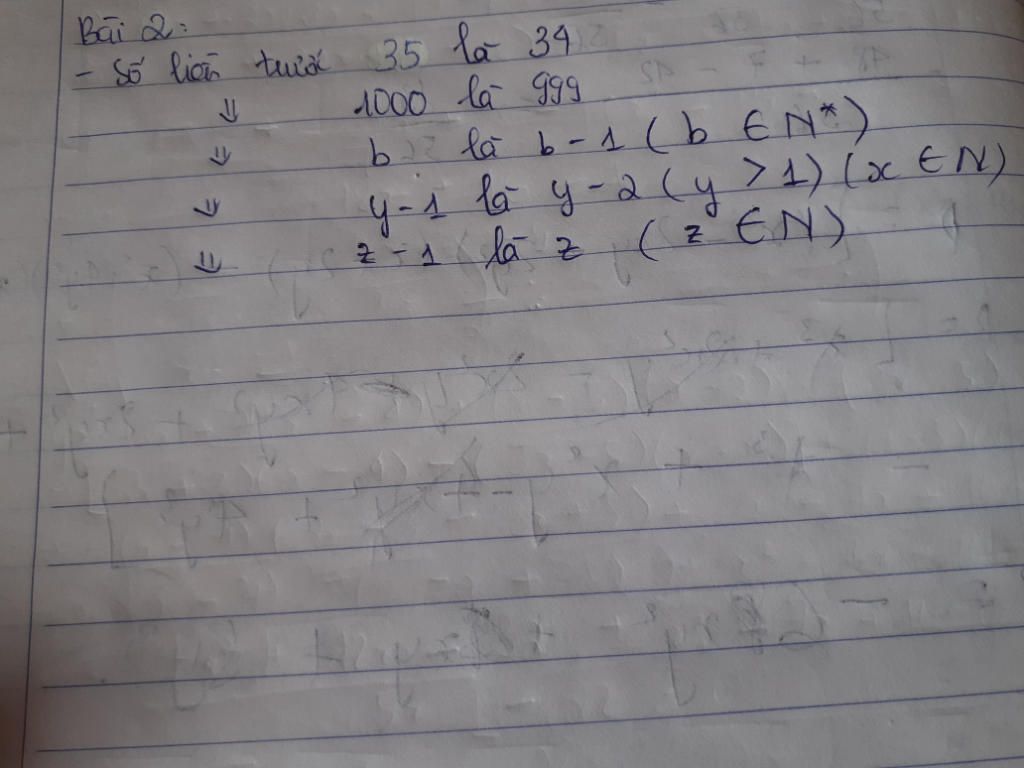 Bài 2:
- Số liền trước 35 là 34
⇓ 1000 là 999
⇓ b là b - 1 ( b ∈ N* )
⇓ y - 1 là y - 2 ( y > 1 ) ( x ∈ N )
⇓ z - 1 là z ( z ∈ N )